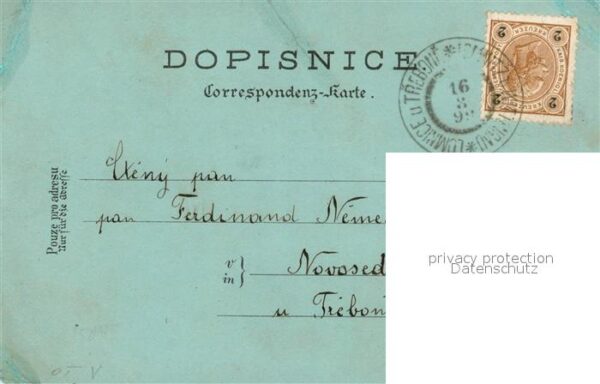 DOPISNICE
Correspondenz-Karte.
LOMNICE U TŘEBONĚ
16
3
2
2
2
2
Pouze pro adresu
Nur für die Adresse
Ctěný pan
pan Ferdinand Něme
v
in
Novosed
u Třeboň
privacy protection
Datenschutz